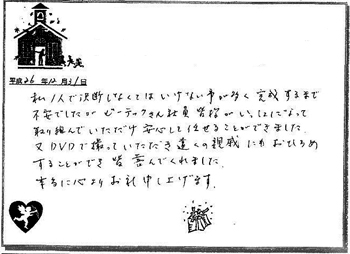 平成26年12月31日
私1人で決断しなくてはいけない事が多く完成するまで
不安でしたがビーテックさん社員皆様がいっしょになって
取り組んでいただけ安心して任せることができました。
又DVDで撮っていただき遠くの親戚にもおひろめ
することができ皆喜んでくれました。
まるに心よりお礼申し上げます。